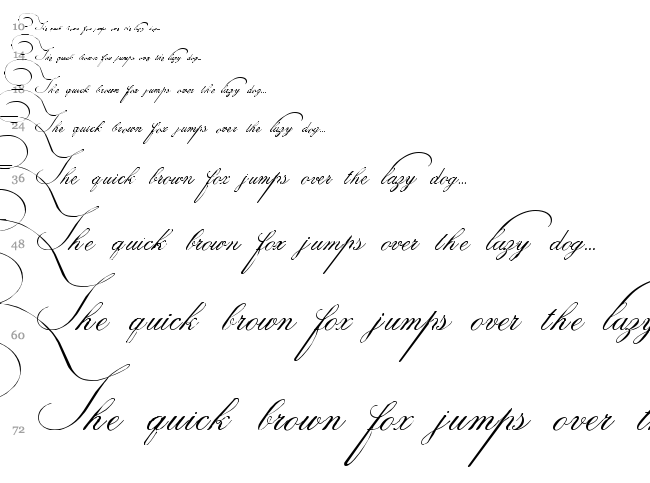 10 The quick brown fox jumps over the lazy dog...
14 The quick brown fox jumps over the lazy dog...
18 The quick brown fox jumps over the lazy dog...
24 The quick brown fox jumps over the lazy dog...
36 The quick brown fox jumps over the lazy dog...
48 The quick brown fox jumps over the lazy dog...
60 The quick brown fox jumps over the lazy
72 The quick brown fox jumps over t